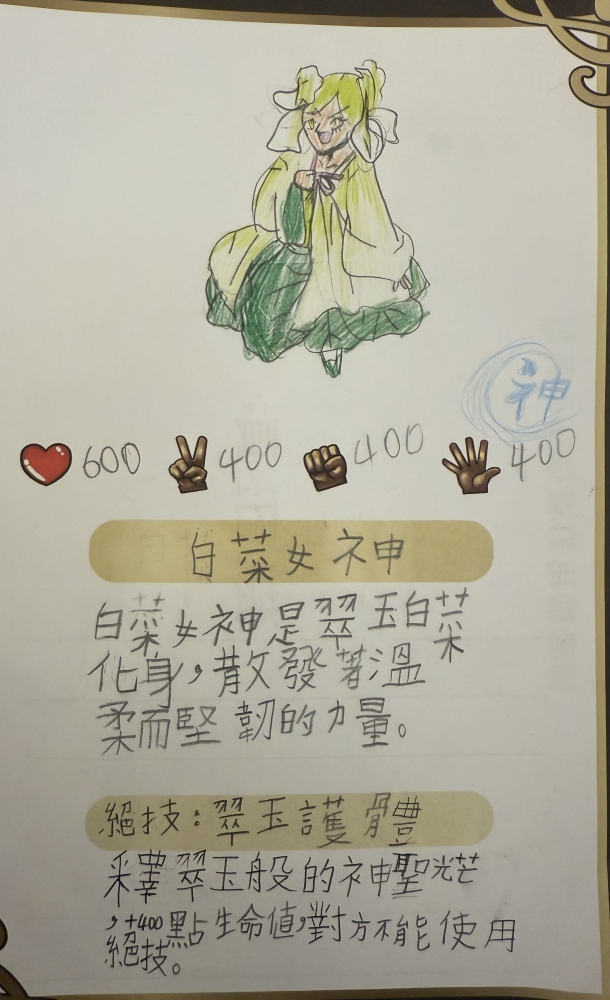 神
600 400 400 400
白菜女神
白菜女神是翠玉白菜
化身，散發著溫
柔而堅韌的力量。
絕技：翠玉護體
釋翠玉般的神聖光芒
，+400點生命值，對方不能使用
絕技。